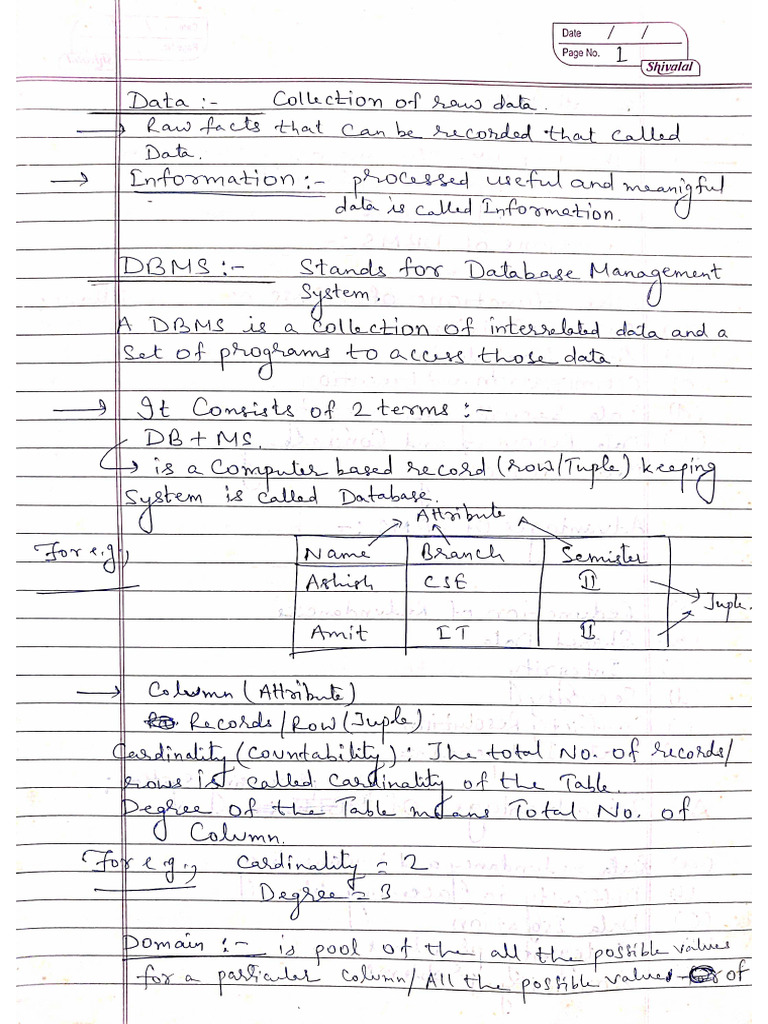 Date / /
Page No. 1
Shivalal
Data :- Collection of raw data.
→ Raw facts that can be recorded that called
Data.
→ Information :- processed useful and meanigful
data is called Information.
DBMS :- Stands for Database Management
System.
A DBMS is a collection of interrelated data and a
set of programs to access those data.
→ It Consists of 2 terms :-
DB + MS.
→ is a Computer based record (row/Tuple) keeping
System is called Database.
Attribute
For e.g.,
Name Branch Semister
Ashish CSE II
Tuple.
Amit IT II
→ Column (Attribute)
Records/Row (Tuple)
Cardinality (Countability) : The total No. of records/
rows is called Cardinality of the Table.
Degree of the Table means Total No. of
Column.
For e.g., Cardinality = 2
Degree = 3
Domain :- is pool of the all the possible values
for a particular column/All the possible values of